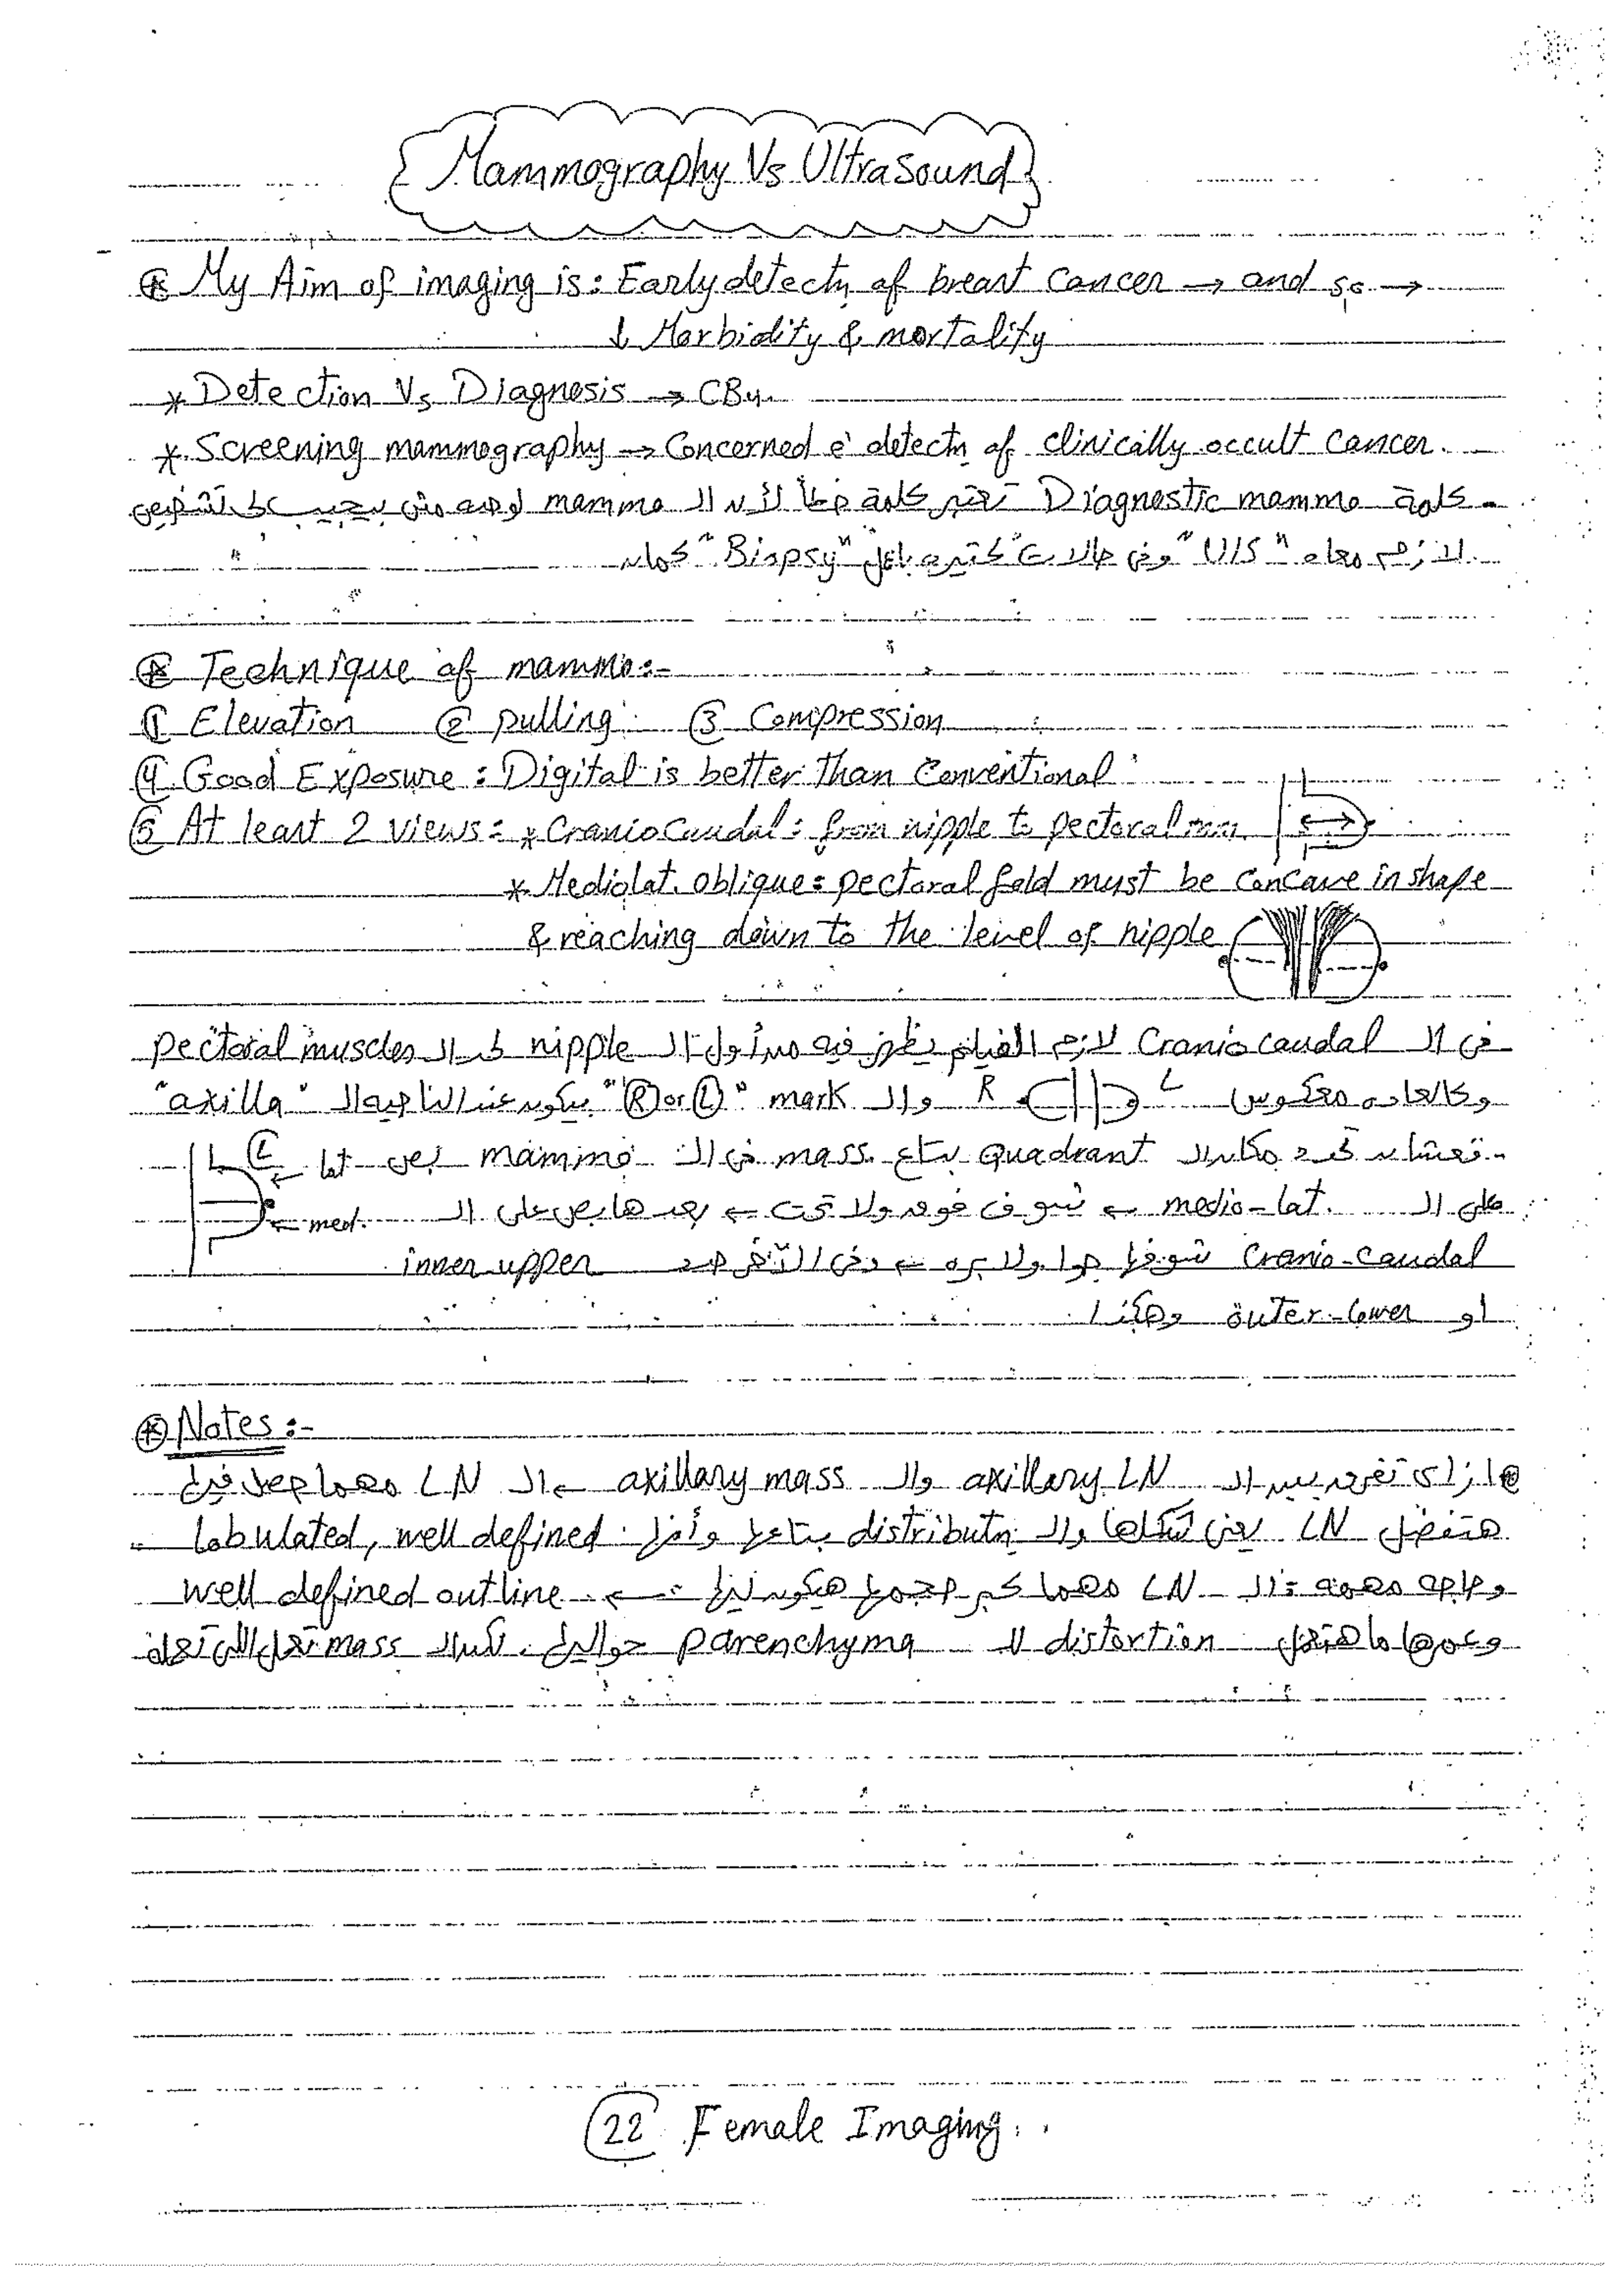 Mammography Vs UltraSound
⊛ My Aim of imaging is: Early detectn of breast cancer → and so →
↓ Morbidity & mortality
* Detection Vs Diagnosis → CBy.
* Screening mammography → Concerned c̄ detectn of clinically occult cancer.
- كلمة Diagnostic mammo تعتبر كلمة خطأ لأن ال mammo لوحده مش بيجيب لى تشخيص
لازم معاه "U/S" وفى حالات كتيره باعمل "Biopsy" كمان
⊛ Technique of mammo:-
① Elevation ② pulling ③ Compression
④ Good Exposure: Digital is better than Conventional
⑤ At least 2 views: * Craniocaudal: from nipple to pectoral mm.
* Mediolat. oblique: pectoral fold must be concave in shape
& reaching down to the level of nipple
فى ال Craniocaudal لازم الفيلم يظهر فيه من أول ال nipple لحد ال pectoral muscles
وكالعاده معكوس L R وال mark "Ⓡ or Ⓛ" بيكون عند الناحيه ال "axilla"
- تعشان تحدد مكان ال quadrant بتاع mass فى ال mammo بص لها L
على ال medio-lat. ← شوف فوق ولا تحت ← بعدها بص على ال ← med.
Cranio-caudal شوفها جوا ولا بره ← وفى الآخر inner upper
او outer-lower وهكذا
⊛ Notes:-
ازاى تفرق بين ال axillary LN وال axillary mass ← ال LN مهما حصل فيها
هتفضل LN يعنى شكلها وال distributn بتاعها وأنها lobulated, well defined
وحاجه مهمه: ال LN مهما كبر حجمها هيكون ليها ← well defined outline
وعمرها ما هتعمل distortion لل parenchyma حواليها، لكن ال mass تعمل اللى تعمله
22 Female Imaging